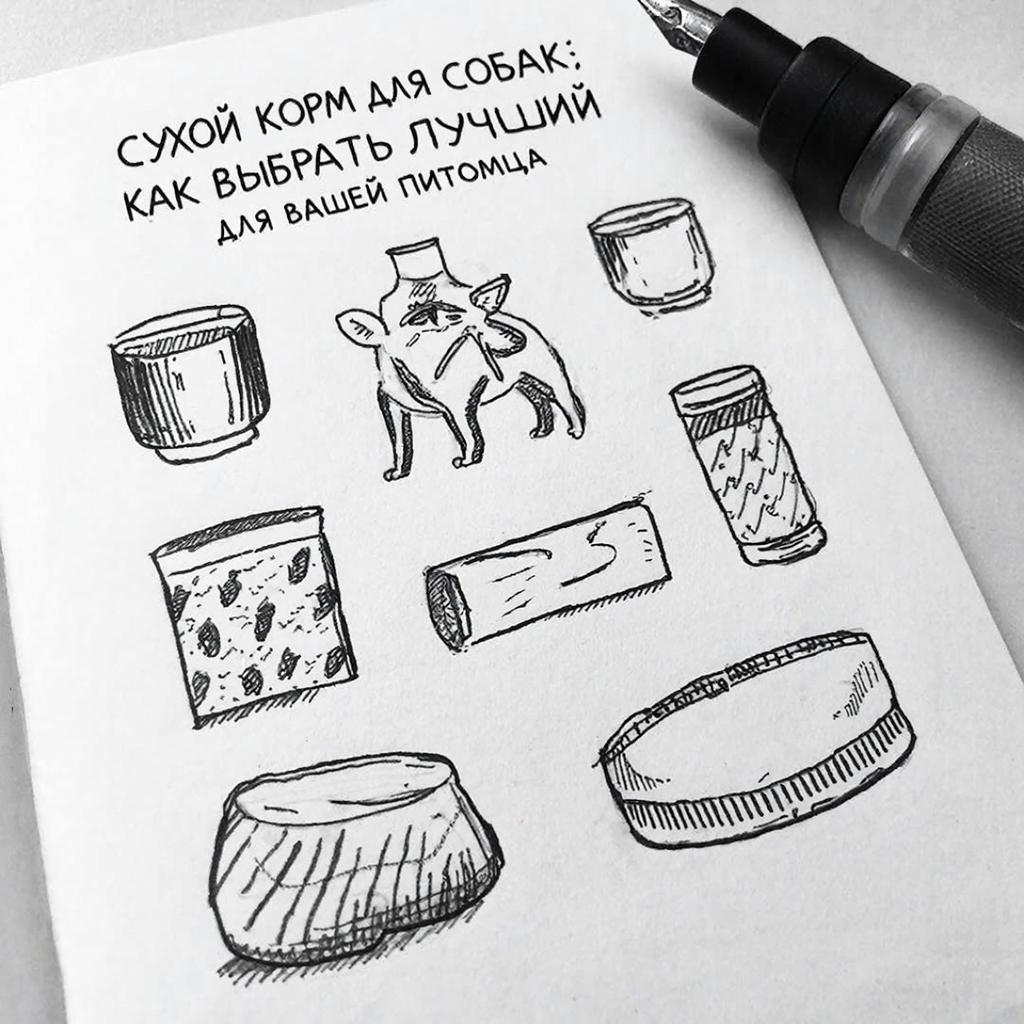 СУХОЙ КОРМ ДЛЯ СОБАК:
КАК ВЫБРАТЬ ЛУЧШИЙ
ДЛЯ ВАШЕЙ ПИТОМЦА